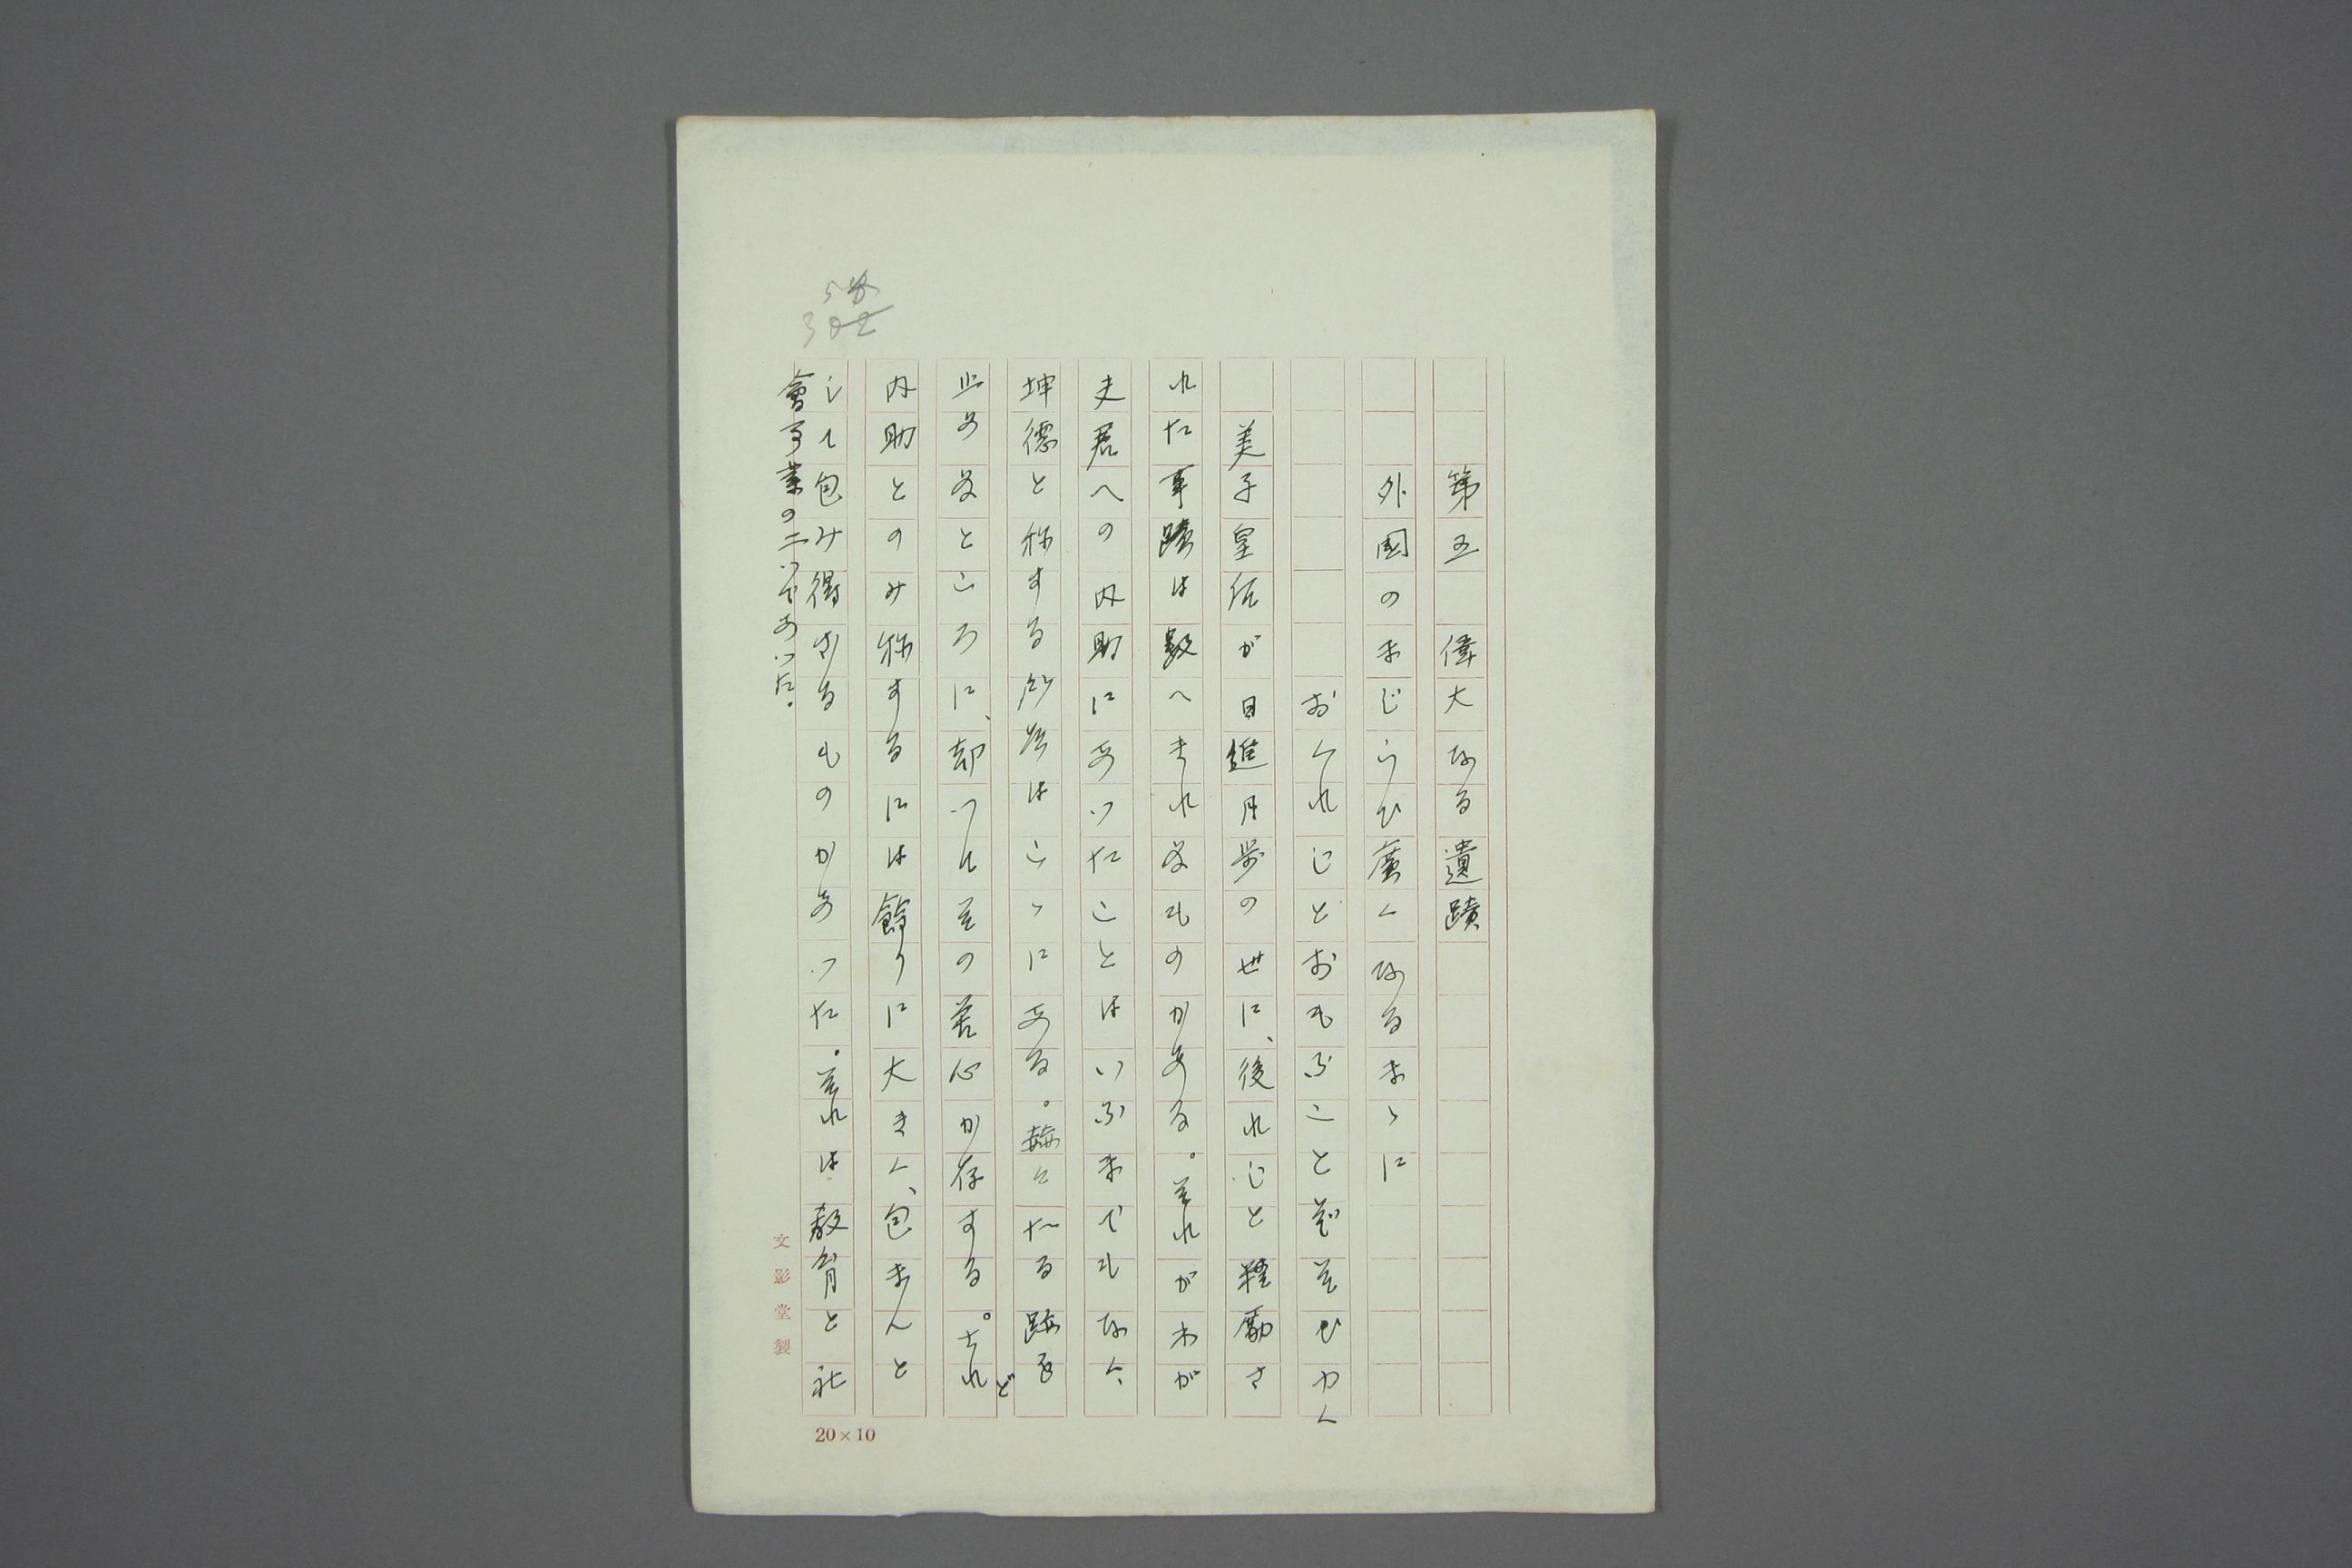 第五　偉大なる遺蹟
外国のまじらひ廣くなるまゝに
おくれじとおもふことぞそひゆく
美子皇后が日進月歩の世に、後れじと精勵さ
れた事蹟は数へきれぬものがある。それがわが
夫君への内助にあつたことはいふまでもなく、
坤徳と称する所以はこゝにある。赫々たる跡を
止めぬところに、却つてその苦心が存する。されど
内助とのみ称するには餘りに大きく、包まんと
して包み得ざるものがあつた。それは教育と社
會事業の二つであつた。
文影堂製
20×10